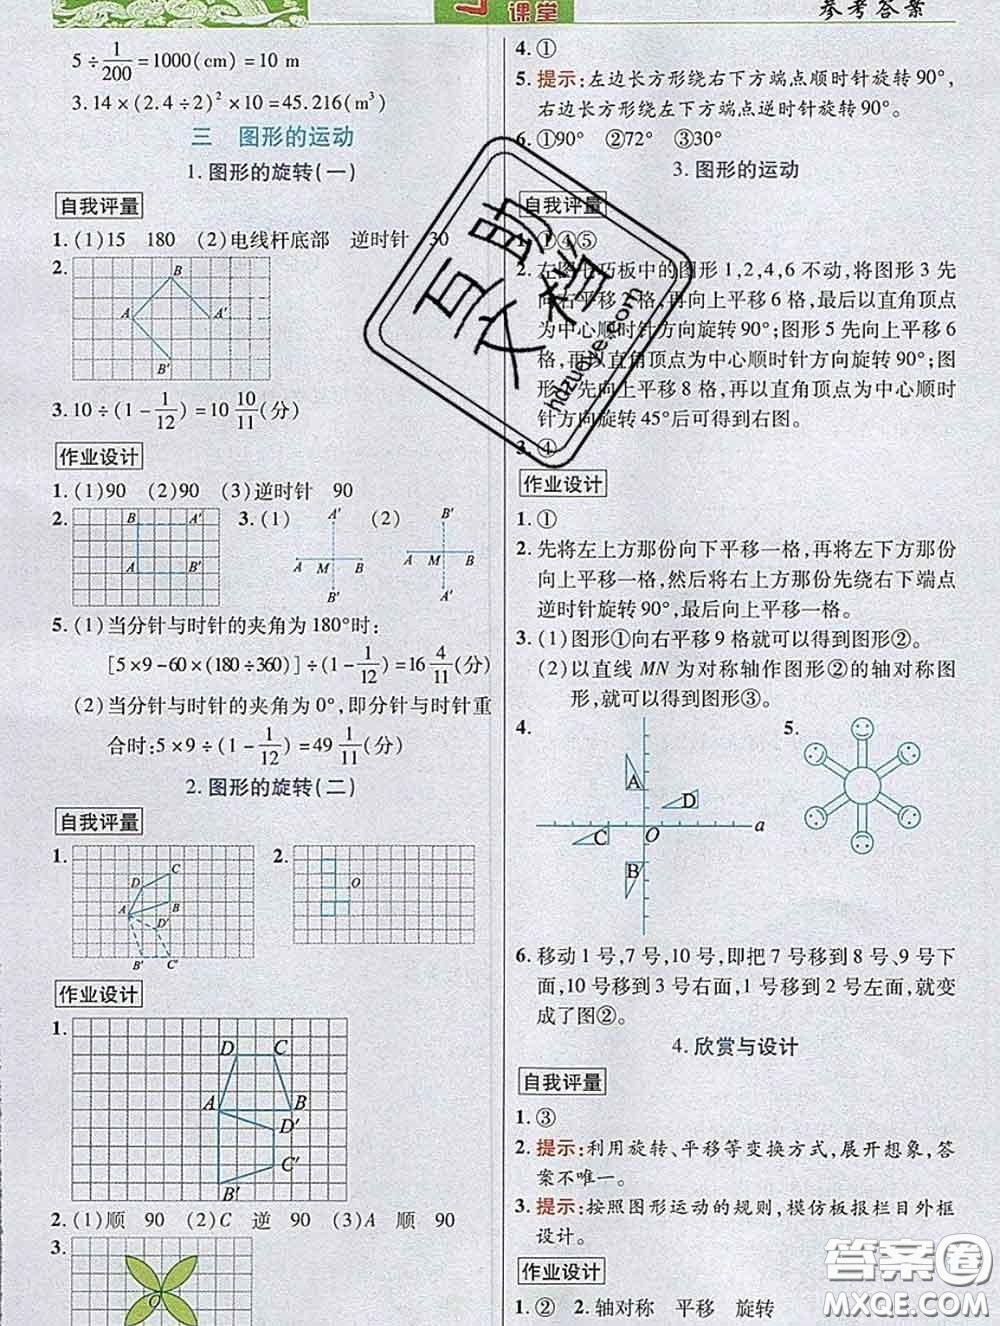 课堂
参考答案
5÷1/200=1000(cm)=10 m
3.14×(2.4÷2)²×10=45.216(m³)
三 图形的运动
1.图形的旋转(一)
自我评量
1.(1)15 180 (2)电线杆底部 逆时针 30
2.
B
A A′
B′
3.10÷(1-1/12)=10 10/11(分)
作业设计
1.(1)90 (2)90 (3)逆时针 90
2.
B A′
A B′
3.(1)
A′
A M B
B′
(2)
B′
A M B
A′
5.(1)当分针与时针的夹角为180°时:
[5×9-60×(180÷360)]÷(1-1/12)=16 4/11(分)
(2)当分针与时针的夹角为0°,即分针与时针重
合时:5×9÷(1-1/12)=49 1/11(分)
2.图形的旋转(二)
自我评量
1.
D C
A B
D′
B′ C′
2.
O
作业设计
1.
D C
A B
D′
C′
B′
2.(1)顺 90 (2)C 逆 90 (3)A 顺 90
3.
O
4.①
5.提示:左边长方形绕右下方端点顺时针旋转90°,
右边长方形绕左下方端点逆时针旋转90°。
6.①90° ②72° ③30°
3.图形的运动
自我评量
①④⑤
2.左图七巧板中的图形1,2,4,6不动,将图形3先
向右平移 格,再向上平移6格,最后以直角顶点
为中心顺时针方向旋转90°;图形5先向上平移6
格,再以直角顶点为中心顺时针方向旋转90°;图
形 先向上平移8格,再以直角顶点为中心顺时
针方向旋转45°后可得到右图。
3.④
作业设计
1.①
2.先将左上方那份向下平移一格,再将左下方那份
向上平移一格,然后将右上方那份先绕右下端点
逆时针旋转90°,最后向上平移一格。
3.(1)图形①向右平移9格就可以得到图形②。
(2)以直线MN为对称轴作图形②的轴对称图
形,就可以得到图形③。
4.
A
D
C O a
B
5.
6.移动1号,7号,10号,即把7号移到8号、9号下
面,10号移到3号右面,1号移到2号左面,就变
成了图②。
4.欣赏与设计
自我评量
1.③
2.提示:利用旋转、平移等变换方式,展开想象,答
案不唯一。
3.提示:按照图形运动的规则,模仿板报栏目外框
设计。
作业设计
1.② 2.轴对称 平移 旋转
互助
文档
hdzuoye.com
答案圈
MXQE.COM